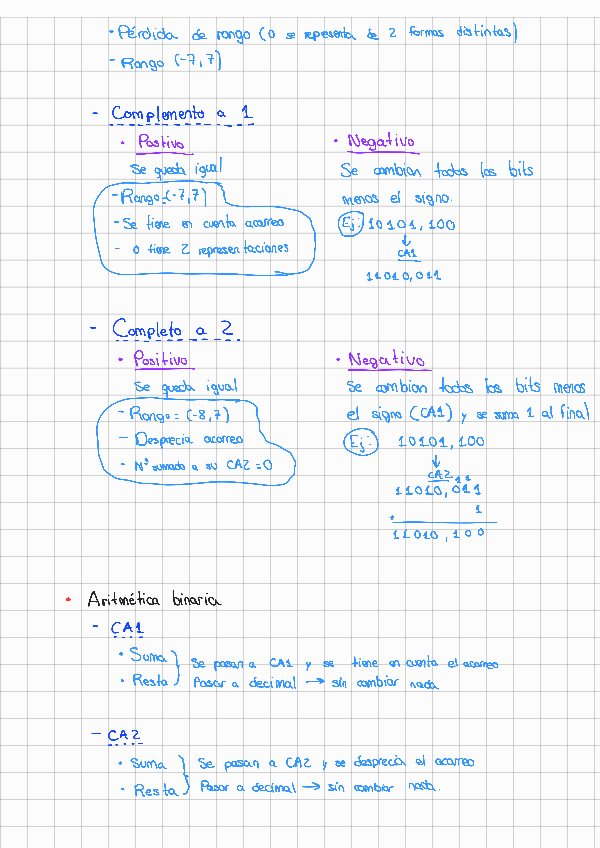 • Pérdida de rango (0 se representa de 2 formas distintas)
- Rango (-7,7)
- Complemento a 1
• Postivo
Se queda igual
- Rango=(-7,7)
- Se tiene en cuenta acarreo
- 0 tiene 2 representaciones
• Negativo
Se cambian todos los bits
menos el signo.
Ej: 10101,100
↓
CA1
11010,011
- Completo a 2
• Positivo
Se queda igual
- Rango = (-8,7)
- Desprecia acarreo
- Nº sumado a su CA2 = 0
• Negativo
Se cambian todos los bits menos
el signo (CA1) y se suma 1 al final
Ej: 10101,100
↓
CA2 1 1
11010,011
+ 1
11010,100
• Aritmética binaria
- CA1
• Suma
• Resta
} Se pasan a CA1 y se tiene en cuenta el acarreo
Pasar a decimal → sin cambiar nada
- CA2
• Suma
• Resta
} Se pasan a CA2 y se desprecia el acarreo
Pasar a decimal → sin cambiar nada.